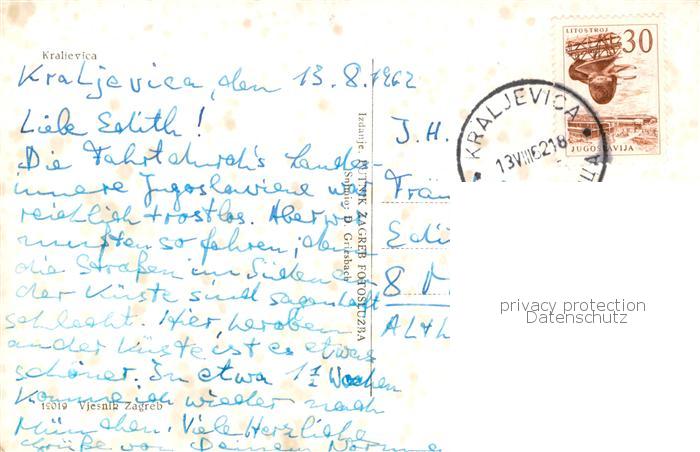 Kraljevica
Kraljevica, den 13.8.1962
Liebe Edith!
Die Fahrt durch's Landes-
innere Jugoslawiens war
reichlich trostlos. Aber wir
mussten so fahren; denn
die Straßen im Süden
der Küste sind sagenhaft
schlecht. Hier, heroben
an der Küste ist es etwas
schöner. In etwa 1 1/2 Wochen
komme ich wieder nach
München. Viele Herzliche
Grüße von Deinem
15019 Vjesnik Zagreb
Izdanje PUTNIK ZAGREB FOTOSLUŽBA
Snimio: D. Griesbach
J.H.
Frän
Edi
8
LITOSTROJ
30
JUGOSLAVIJA
KRALJEVICA
13VIII6218
privacy protection
Datenschutz